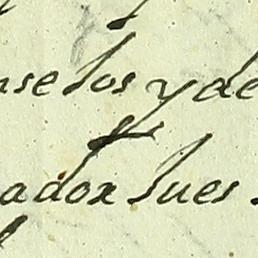 nse los y de
adox lues